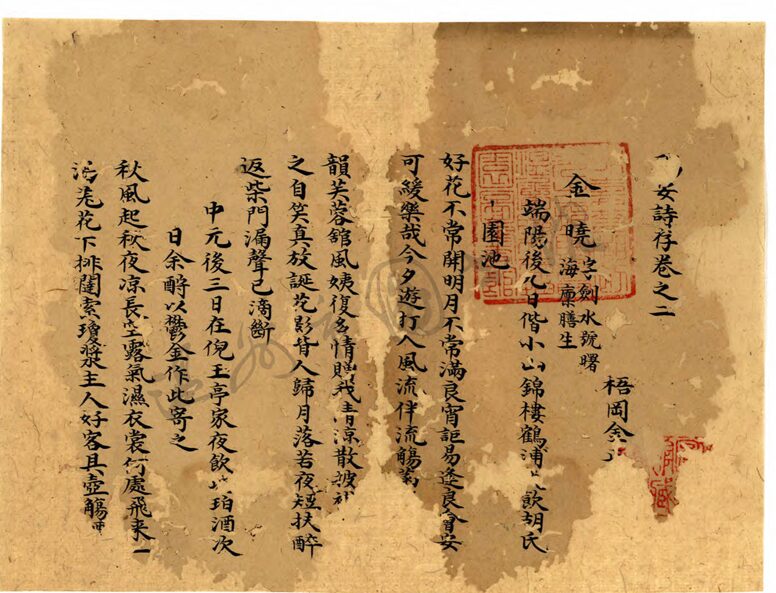 安詩存卷之二
梧岡金
金曉 字劍水號曙海廩膳生
端陽後九日偕小山錦樓鶴浦飲胡氏
園池
好花不常開明月不常滿良宵詎易逢良會安
可緩樂哉今夕遊打入風流伴流觴
韻芙蓉舘風姨復多情賜我清涼散披
之自笑真放誕花影背人歸月落若夜短扶醉
返柴門漏聲已滴斷
中元後三日在倪玉亭家夜飲珀酒次
日余酹以鬱金作此寄之
秋風起秋夜凉長空露氣濕衣裳何處飛来一
花下排闥索瓊漿主人好客具壺觴